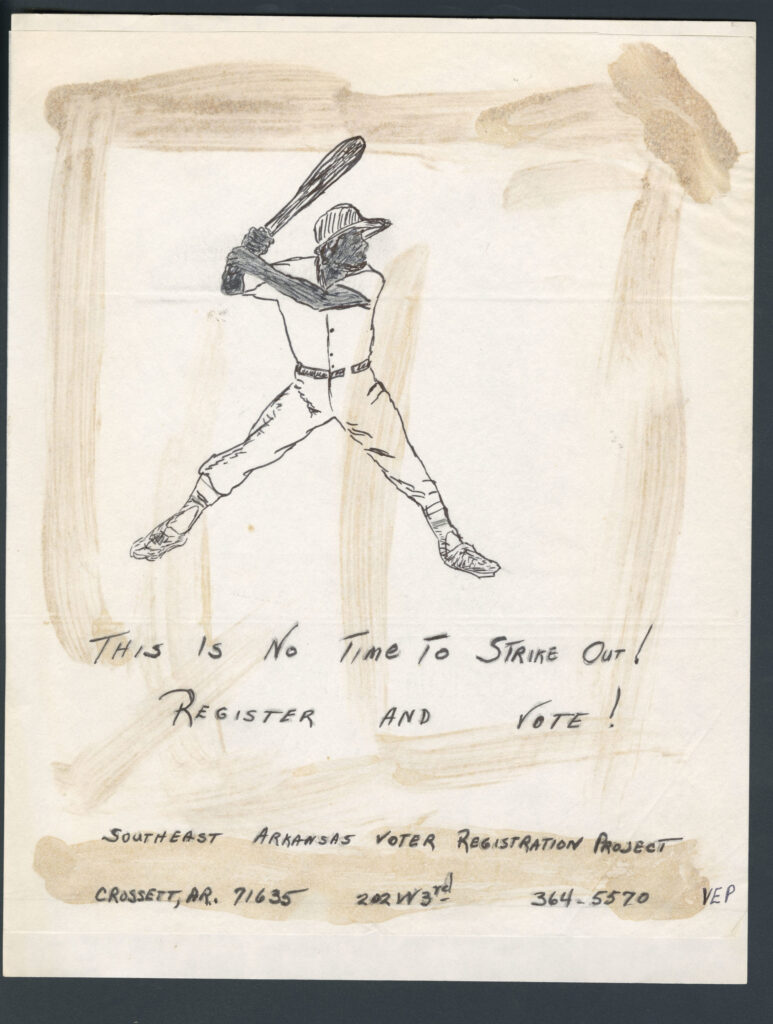 This Is No Time To Strike Out!
Register and Vote!
Southeast Arkansas Voter Registration Project
Crossett, AR. 71635 202 W 3rd 364-5570 VEP